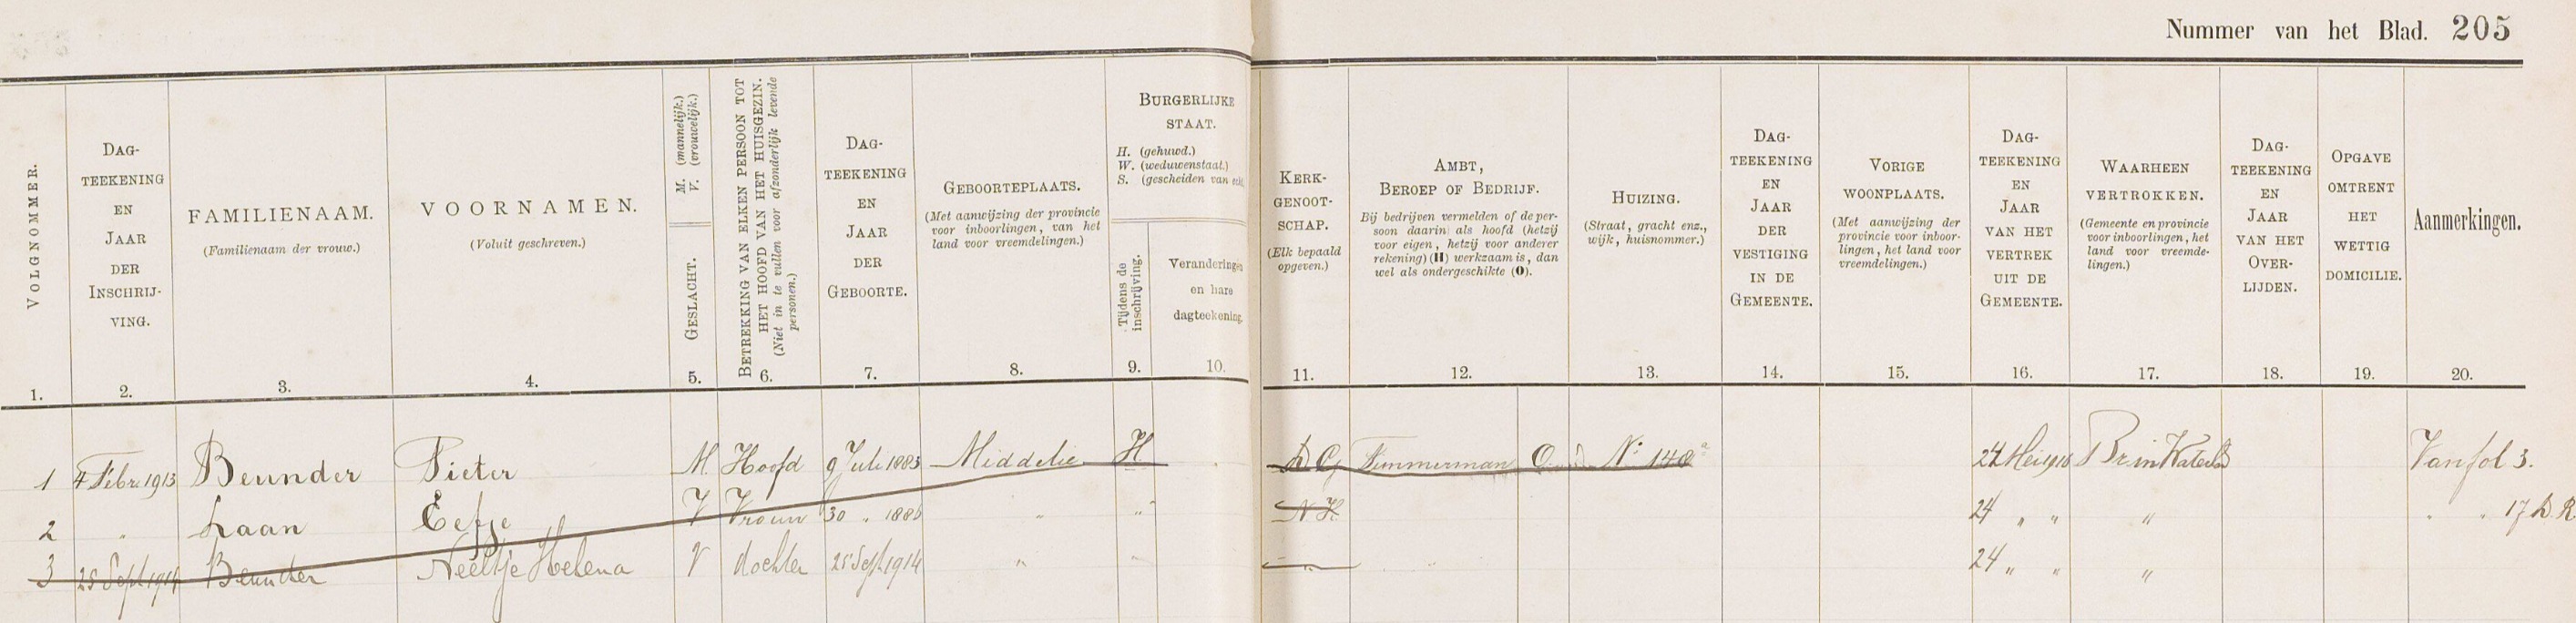 Nummer van het Blad. 205
VOLGNOMMER.
DAG-
TEEKENING
EN
JAAR
DER
INSCHRIJ-
VING.
FAMILIENAAM.
(Familienaam der vrouw.)
VOORNAMEN.
(Voluit geschreven.)
M. (mannelijk.)
V. (vrouwelijk.)
GESLACHT.
BETREKKING VAN ELKEN PERSOON TOT
HET HOOFD VAN HET HUISGEZIN.
(Niet in te vullen voor afzonderlijk levende
personen.)
DAG-
TEEKENING
EN
JAAR
DER
GEBOORTE.
GEBOORTEPLAATS.
(Met aanwijzing der provincie
voor inboorlingen, van het
land voor vreemdelingen.)
BURGERLIJKE
STAAT.
H. (gehuwd.)
W. (weduwenstaat.)
S. (gescheiden van echt.
Tijdens de
inschrijving.
Veranderingen
en hare
dagteekening.
KERK-
GENOOT-
SCHAP.
(Elk bepaald
opgeven.)
AMBT,
BEROEP OF BEDRIJF.
Bij bedrijven vermelden of de per-
soon daarin als hoofd (hetzij
voor eigen, hetzij voor anderer
rekening) (H) werkzaam is, dan
wel als ondergeschikte (O).
HUIZING.
(Straat, gracht enz.,
wijk, huisnommer.)
DAG-
TEEKENING
EN
JAAR
DER
VESTIGING
IN DE
GEMEENTE.
VORIGE
WOONPLAATS.
(Met aanwijzing der
provincie voor inboor-
lingen, het land voor
vreemdelingen.)
DAG-
TEEKENING
EN
JAAR
VAN HET
VERTREK
UIT DE
GEMEENTE.
WAARHEEN
VERTROKKEN.
(Gemeente en provincie
voor inboorlingen, het
land voor vreemde-
lingen.)
DAG-
TEEKENING
EN
JAAR
VAN HET
OVER-
LIJDEN.
OPGAVE
OMTRENT
HET
WETTIG
DOMICILIE.
Aanmerkingen.
1. 2. 3. 4. 5. 6. 7. 8. 9. 10. 11. 12. 13. 14. 15. 16. 17. 18. 19. 20.
1 4 Febr. 1913 Beunder Pieter M Hoofd 9 Juli 1883 Middelie H D G Timmerman O No 140a 24 Mei Br in Waterl Van fol 3.
2 " Laan Eefje V Vrouw 30 " 1886 " " N H 24 " " " " " 17 D. R.
3 25 Sept 1914 Beunder Neeltje Helena V dochter 25 Sept 1914 " " " " 24 " " "